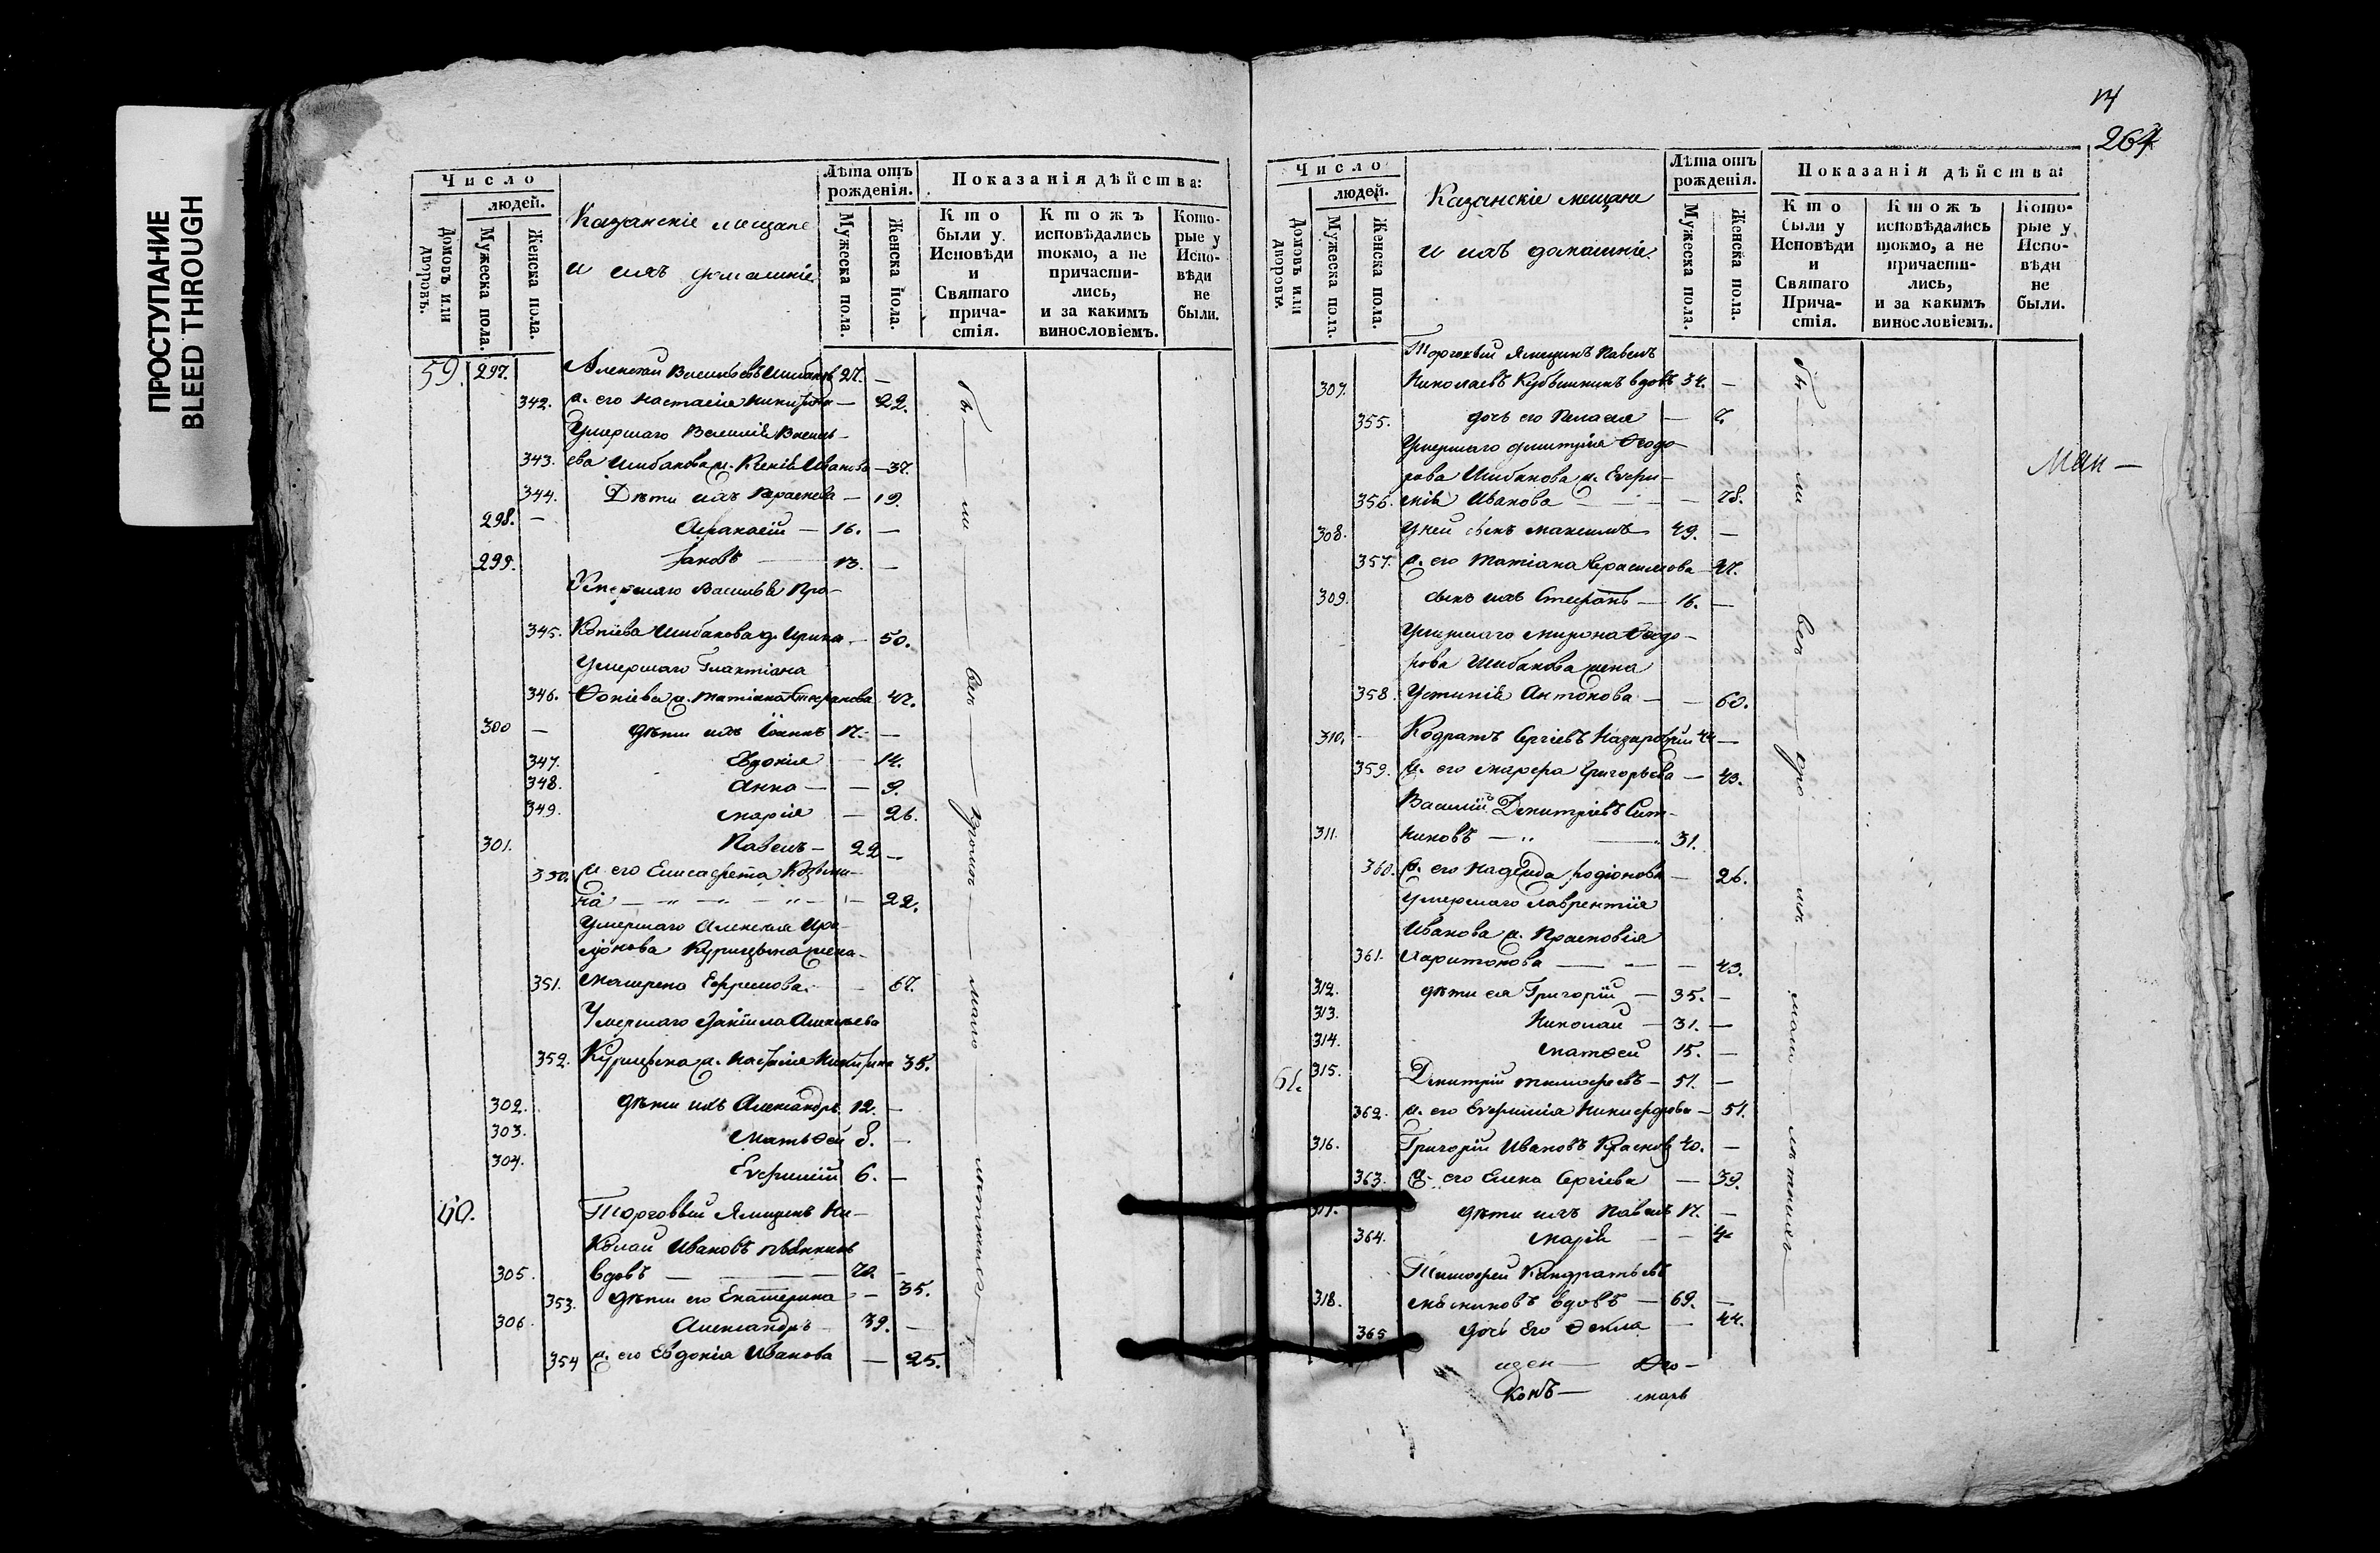 ПРОСТУПАНИЕ
BLEED THROUGH
Число
людей.
Домовъ или дворовъ.
Мужеска пола.
Женска пола.
Казанскіе мещане
и ихъ домашніе
Лѣта отъ рожденія.
Мужеска пола.
Женска пола.
Показанія дѣйства:
Кто были у Исповѣди и Святаго причастія.
Ктожъ исповѣдались токмо, а не причастились, и за какимъ винословіемъ.
Которые у Исповѣди не были.
59. 297. Алексѣй Васильевъ Шибановъ 27. —
342. ж. его Настасія Никифорова — 22.
Умершаго Василія Василь-
343. ева Шибанова ж. Ксенія Иванова — 37.
344. Дѣти ихъ Парасковія — 19.
298. — Афанасій — 16. —
299. Іаковъ — 13. —
Умершаго Василья Про-
345. копіева Шибанова д. Ирина — 50.
Умершаго Галактіона
346. Фокіева ж. Татіана Стефанова 47.
300 — дѣти ихъ Іоаннъ 17. —
347. Евдокія — 14.
348. Анна — — 9.
349. Марія — 26.
301. Павелъ — 22 —
350. ж его Елисавета Козьми-
на — — — 22.
Умершаго Алексѣя Ира-
ліонова Курицына жена
351. Матрена Ефремова — 67.
Умершаго Даніила Алексѣева
352. Курицына ж. Настасія Никитина 35.
302. дѣти ихъ Александръ 12. —
303. Матьѳей 8. —
304. Евфимій 6. —
60. Торговый Ямщикъ Ни-
колай Ивановъ
305. вдовъ — 70 —
353. дѣти его Екатерина — 35.
306. Александръ 39. —
354 ж. его Евдокія Иванова — 25.
бы — ли — вси —
мало — лѣтніе
14
264
Число
людей.
Домовъ или дворовъ.
Мужеска пола.
Женска пола.
Казанскіе мещане
и ихъ домашніе
Лѣта отъ рожденія.
Мужеска пола.
Женска пола.
Показанія дѣйства:
Кто были у Исповѣди и Святаго Причастія.
Ктожъ исповѣдались токмо, а не причастились, и за какимъ винословіемъ.
Которые у Исповѣди не были.
Торговый Ямщикъ Павелъ
307. Николаевъ Кубышкинъ вдовъ 34. —
355. дочь его Пелагея — 7.
Умершаго Дмитрія Ѳеодо-
рова Шибанова ж. Евфи-
356. мія Иванова — — 78.
308. У ней сынъ Максимъ 49. —
357. ж. его Татіана Герасимова 47.
309. сынъ ихъ Стефанъ — 16. —
Умершаго Мирона Ѳеодо-
рова Шибанова жена
358. Устинія Антонова — — 60.
310. Кодратъ Сергіевъ 44 —
359. ж. его Марфа Григорьева — 43.
Василій Дмитріевъ Сит-
311. никовъ — 31.
360. ж. его Надежда Родіонова — 26.
Умершаго Лаврентія
Иванова ж. Прасковія
361. Харитонова — — 43.
312. дѣти ея Григорій — 35. —
313. Николай — 31. —
314. Матѳей 15. —
61. 315. Дмитрій Тимофеевъ — 51. —
362. ж. его Евфимія Никифорова — 51.
316. Григорій Ивановъ Красновъ 40. —
363. ж. его Елена Сергіева — 39.
317. дѣти ихъ Павелъ 17. —
364. Марія — —
Тимофей Кандратьевъ
318. Мясниковъ вдовъ — 69. —
365 дочь Его Ѳекла — 44.
бы — ли — вси — кро — мѣ — мало — лѣтнихъ
щен — Пно —
конъ — марь